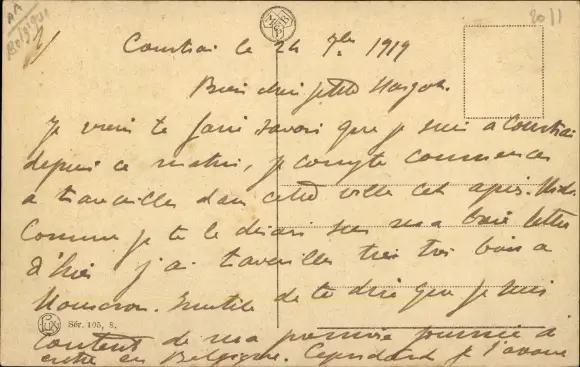 AA
Belgique
2011
Courtrai le 24 7bre 1919
Bien chère petite Margot.
Je viens te faire savoir que je suis à Courtrai
depuis ce matin, je compte commencer
à travailler dans cette ville cet après-Midi.
Comme je te le disais sur ma lettre
d'hier j'ai travaillé très très bien à
Mouscron. Inutile de te dire que je suis
LUX
Sér. 105, 8.
content de ma première journée
en Belgique. Cependant je t'avoue